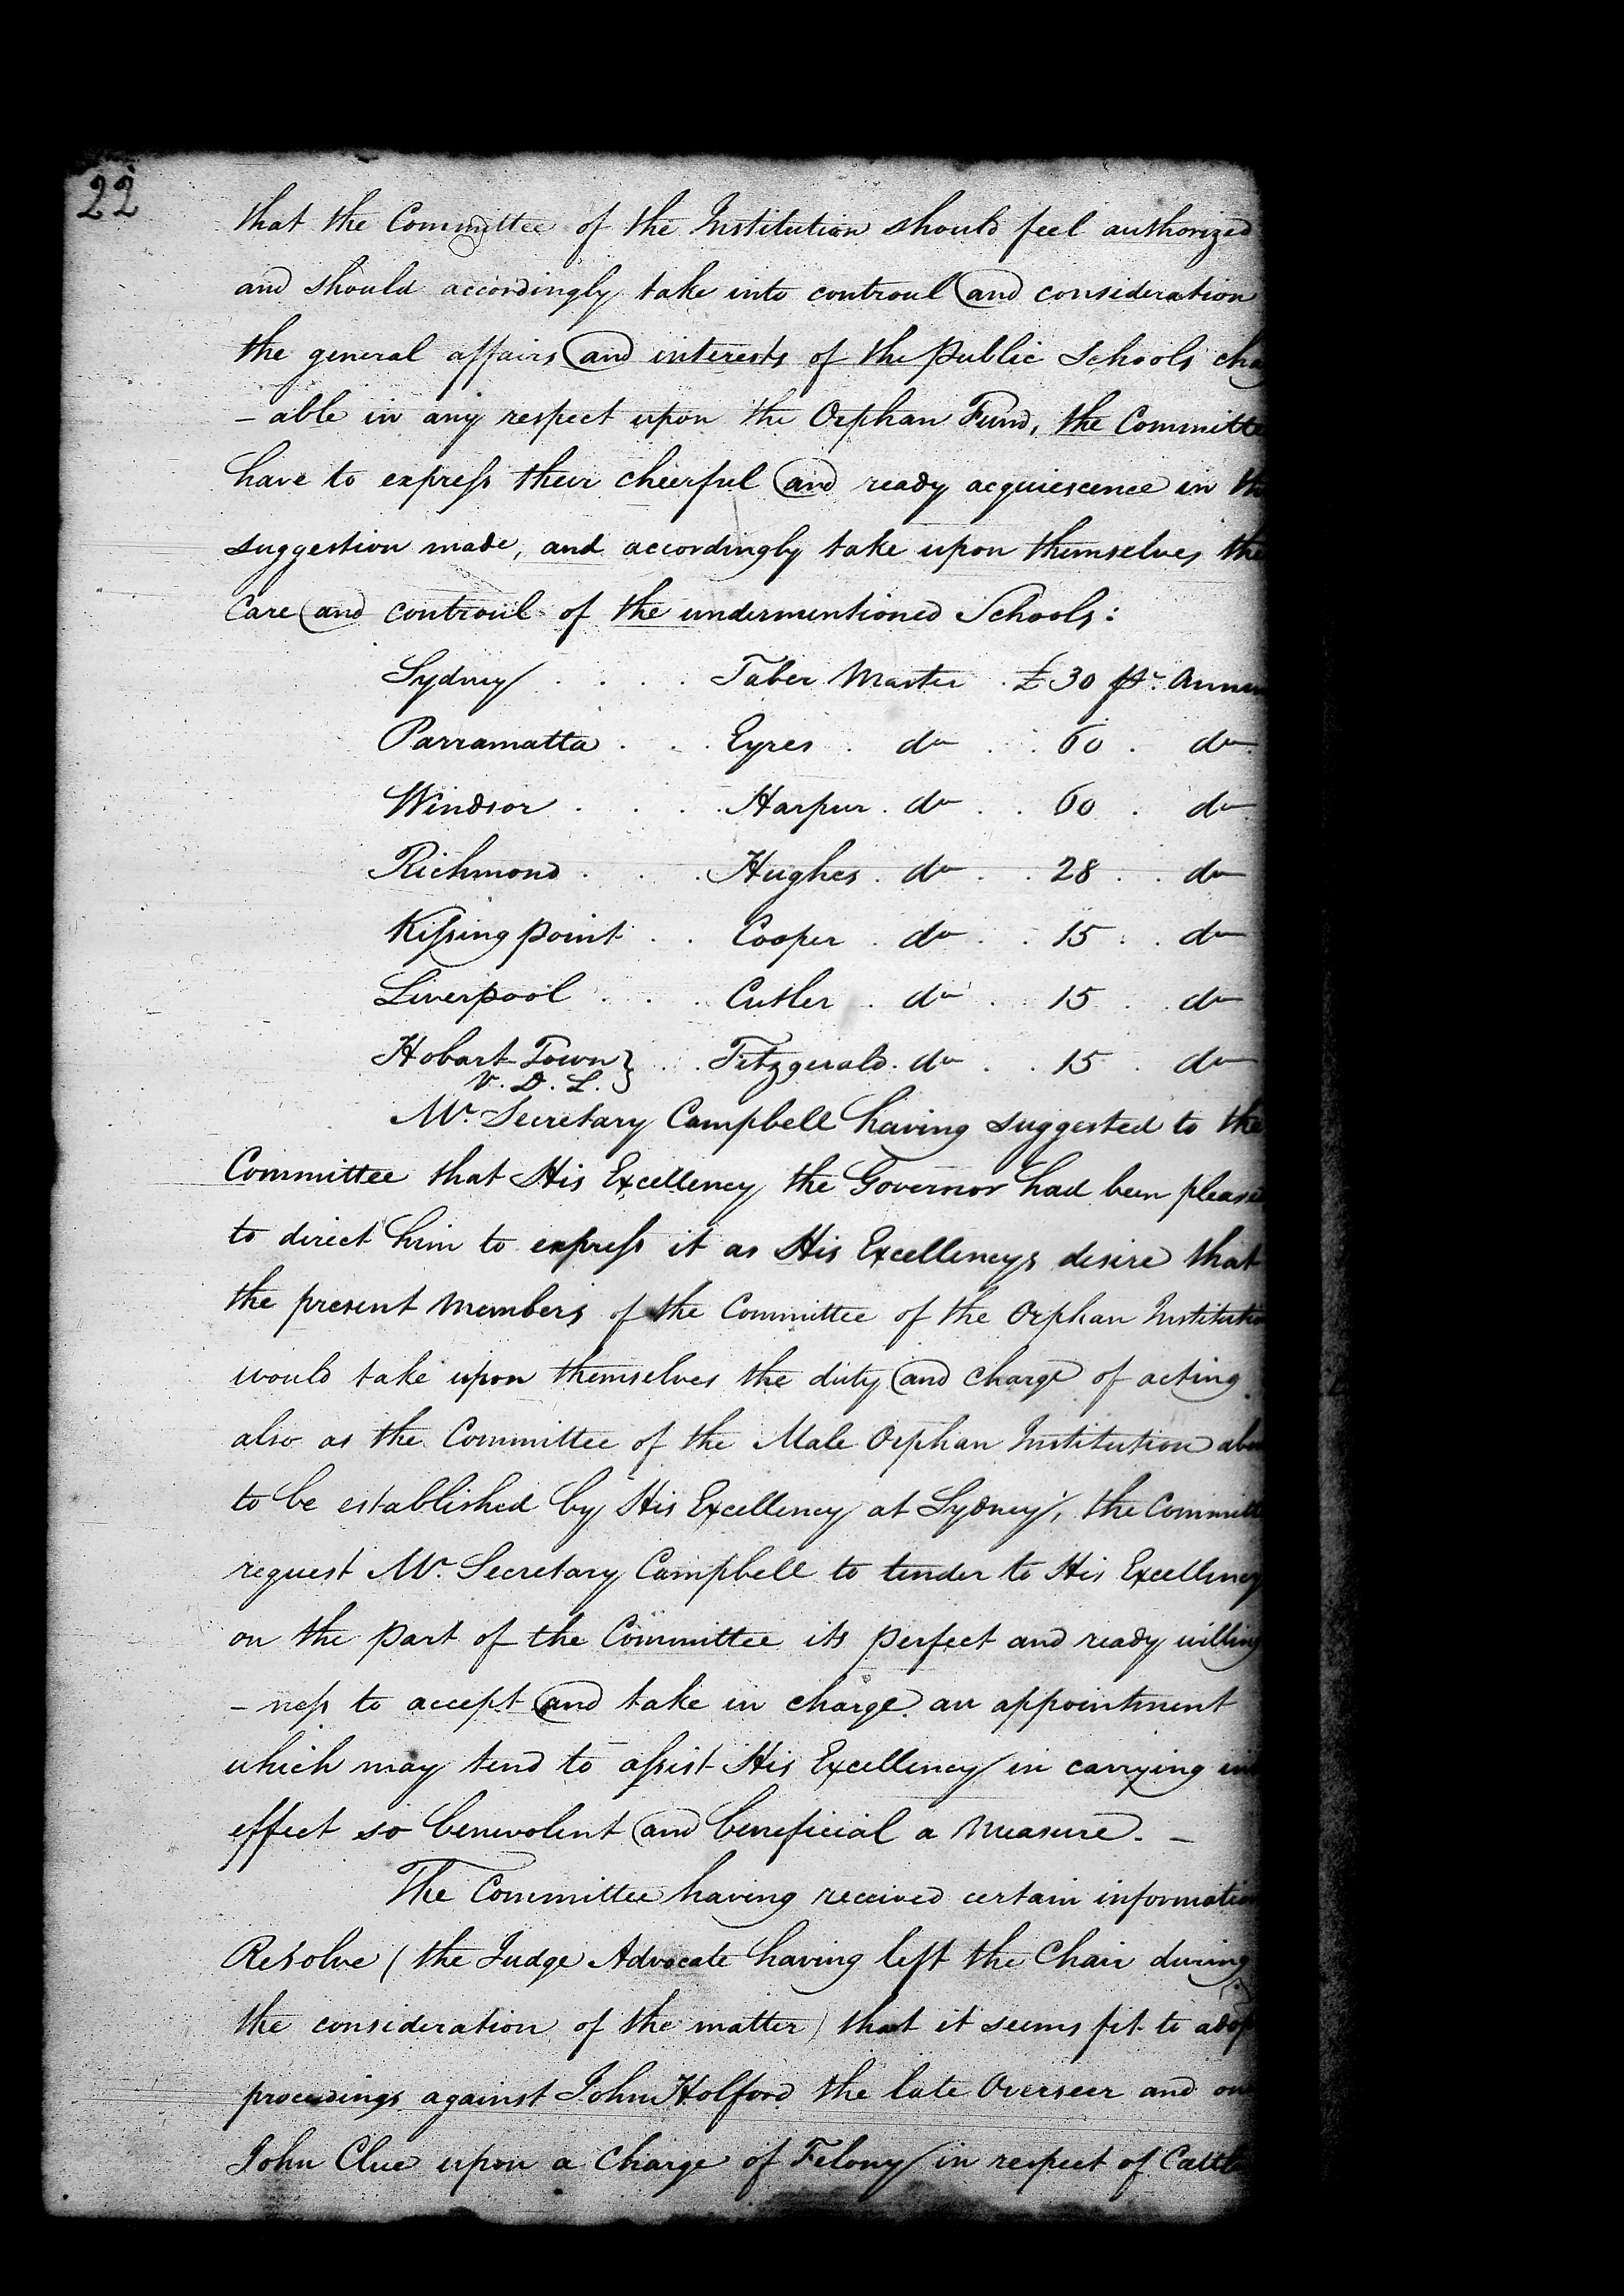 22
that the Committee of the Institution should feel authorized
and should accordingly take into controul and consideration
the general affairs and interests of the public Schools cha
- able in any respect upon the Orphan Fund, the Committe
have to express their cheerful and ready acquiescence in th
suggestion made, and accordingly take upon themselves the
Care and controul of the undermentioned Schools:
Sydney . . . . Taber Master . £30 pr. Annu
Parramatta . . . Eyres . do . . 60 . do
Windsor . . . . Harpur . do . . 60 . do
Richmond . . . Hughes . do . . 28 . . do
Kissing point . . Cooper . do . . 15 . . do
Liverpool . . . Cutler . do . 15 . . do
Hobart Town } . . . Fitzgerald . do . . 15 . do
V. D. L.
Mr. Secretary Campbell having suggested to the
Committee that His Excellency the Governor had been please
to direct him to express it as His Excellencys desire that
the present Members of the Committee of the Orphan Institutio
would take upon themselves the duty and charge of acting
also as the Committee of the Male Orphan Institution abo
to be established by His Excellency at Sydney, the Committe
request Mr. Secretary Campbell to tender to His Excellency
on the part of the Committee its perfect and ready willing
- ness to accept and take in charge an appointment
which may tend to assist His Excellency in carrying int
effect so benevolent and beneficial a Measure. -
The Committee having received certain information
Resolve (the Judge Advocate having left the Chair during
the consideration of the matter) that it seems fit to adop
proceedings against John Holford the late Overseer and one
John Clue upon a Charge of Felony in respect of Cattle